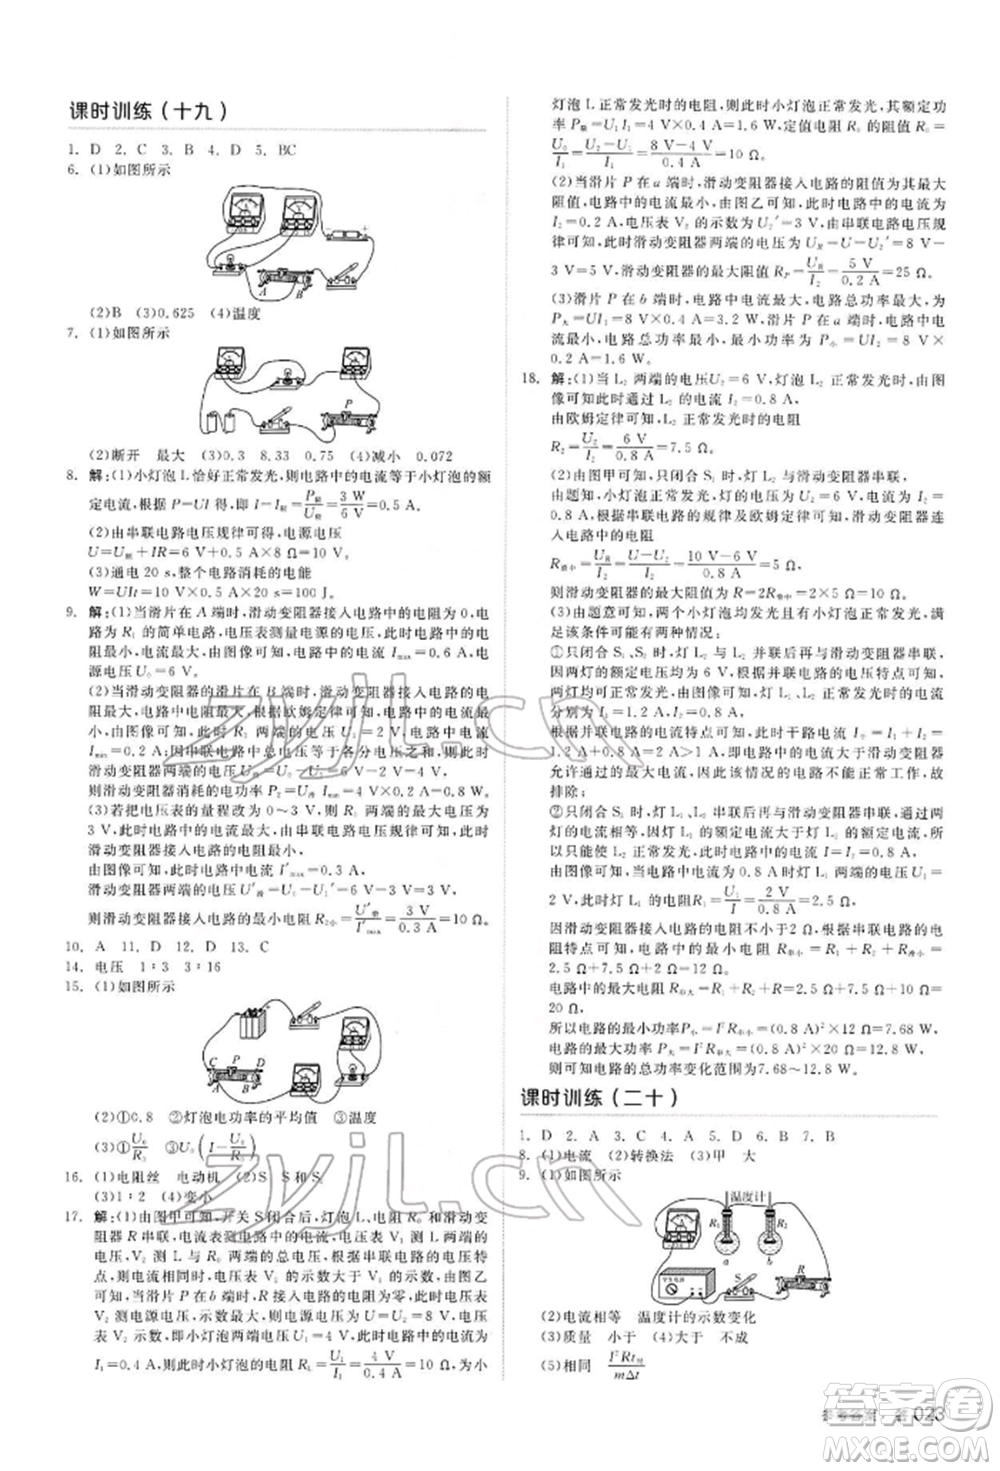 课时训练(十九)
1. D  2. C  3. B  4. D  5. BC
6. (1)如图所示
A B
(2)B  (3)0.625  (4)温度
7. (1)如图所示
P
(2)断开  最大  (3)0.3  8.33  0.75  (4)减小  0.072
8. 解:(1)小灯泡 L 恰好正常发光,则电路中的电流等于小灯泡的额
定电流,根据 P=UI 得,即 I=I额=P额/U额=3 W/6 V=0.5 A。
(2)由串联电路电压规律可得,电源电压
U=U额+IR=6 V+0.5 A×8 Ω=10 V。
(3)通电 20 s,整个电路消耗的电能
W=UIt=10 V×0.5 A×20 s=100 J。
9. 解:(1)当滑片在 A 端时,滑动变阻器接入电路中的电阻为 0,电
路为 R1 的简单电路,电压表测量电源的电压,此时电路中的电
流最大,由图像可知,电路中的最大电流 Imax=0.6 A,此时,电
源电压 U0=6 V。
(2)当滑动变阻器的滑片在 B 端时,滑动变阻器接入电路中的
电阻最大,电路中电流最小,根据欧姆定律可知,此时 U1=2 V,
Imin=0.2 A。因串联电路中总电压等于各分电压之和,所以,滑
动变阻器两端的电压 U滑=U0-U1=6 V-2 V=4 V,
则滑动变阻器消耗的电功率 P2=U滑 Imin=4 V×0.2 A=0.8 W。
(3)若把电压表的量程改为 0~3 V,R1 两端的最大电压为
3 V,此时电路中的电流最大,由串联电路电压规律可知,此时
滑动变阻器接入电路的电阻最小。
由图像可知,此时电路中最大电流 I'max=0.3 A,
滑动变阻器两端的电压 U'滑=U0-U'1=6 V-3 V=3 V,
则滑动变阻器接入电路的最小电阻 R2小=U'滑/I'max=3 V/0.3 A=10 Ω。
10. A  11. D  12. D  13. C
14. 电压  1∶3  3∶16
15. (1)如图所示
C P D
A B
(2)①0.8  ②灯泡电功率的平均值  ③温度
(3)①U0/R3  ③U0(I-U0/R3)
16. (1)电阻丝  电动机  (2)S 和 S1
(3)1∶2  (4)变小
17. 解:(1)由图甲可知,开关 S 闭合后,灯泡 L、电阻 R0 和滑动变
阻器 R 串联,电流表测电路中的电流,电压表 V1 测 R 两端的
电压,V2 测 L 和 R0 两端的总电压,根据串联电路的电压特
点,当电流相同时,电压表 V1 的示数大于 V2 的示数,由图乙
可知,当滑片 P 在 b 端时,滑动变阻器两端的电压为零,电压表
V2 测电源的电压,示数最大,所以电源的电压为 U=U2=8 V,电压
表 V1 示数最小,即小灯泡两端电压为 U1=4 V,电路中的电流为
I1=0.4 A,则小灯泡的电阻 R1=U1/I1=4 V/0.4 A=10 Ω。因为小
灯泡 L 正常发光时的电阻,所以此时小灯泡正常发光,其额定功
率 P额=U1 I1=4 V×0.4 A=1.6 W,定值电阻 R0 的阻值为 R0=
U0/I1=(U2-U1)/I1=(8 V-4 V)/0.4 A=10 Ω。
(2)当滑片 P 在 a 端时,滑动变阻器接入电路的阻值为其最大
阻值,电路中的电流最小,由图乙可知,此时电路中的电流
I2=0.2 A,电压表 V2 的示数为 U2'=3 V,由串联电路电压规
律可知,此时滑动变阻器两端的电压为 UR=U-U2'=8 V-
3 V=5 V,则滑动变阻器的最大阻值 RP=UR/I2=5 V/0.2 A=25 Ω。
(3)滑片 P 在 b 端时,电路中电流最大,电路总功率最大,
P大=UI1=8 V×0.4 A=3.2 W,滑片 P 在 a 端时,电路中的
电流最小,电路总功率最小,P小=UI2=8 V×
0.2 A=1.6 W。
18. 解:(1)当 L2 两端的电压 U2=6 V,灯泡 L2 正常发光时,由图
像可知此时通过 L2 的电流 I2=0.8 A,
由欧姆定律可知,L2 正常发光时的电阻
R2=U2/I2=6 V/0.8 A=7.5 Ω。
(2)由图甲可知,只闭合 S1 时,灯 L2 与滑动变阻器串联,
由题知,小灯泡发光正常,电路中的电流 I2=0.8 A,
根据串联电路的规律及欧姆定律可知,滑动变阻器连
入电路中的电阻
R滑小=U滑/I2=(U-U2)/I2=(10 V-6 V)/0.8 A=5 Ω,
则滑动变阻器的最大阻值为 R滑=2R滑中=2×5 Ω=10 Ω。
(3)由题意可知,两个小灯泡均发光且有小灯泡正常发光,满
足该条件可能有两种情况:
①只闭合 S2 时,灯 L2 与 L1 并联后再与滑动变阻器串联,
因两灯的额定电压均为 6 V,根据并联电路的电压特点可知,
两灯均可正常发光,由图像可知,L1、L2 正常发光时的电流
分别为 I1=1.2 A、I2=0.8 A,
根据并联电路的电流特点可知,此时干路电流为 I=I1+I2=
1.2 A+0.8 A=2 A>1 A,即电路中的电流大于滑动变阻器
允许通过的最大电流,所以这样的电路不能正常工作,故
排除;
②只闭合 S3 时,灯 L1、L2 串联后再与滑动变阻器串联,通过两
灯的电流相等,因灯 L1 的额定电流大于灯 L2 的额定电流,
所以只能灯 L2 正常发光,则此时电路中的电流 I=I2=0.8 A,
由图像可知,此时灯 L1 的电阻 R1=U1/I=2 V/0.8 A=2.5 Ω,
因滑动变阻器的滑片在中点时,灯泡发光正常,根据串联电路的电
阻特点可知,电路中的最小电阻 R串小=R1+R2+R滑小=
2.5 Ω+7.5 Ω+5 Ω=15 Ω...
电路中的最大电阻 R串大=R1+R2+R滑=2.5 Ω+7.5 Ω+10 Ω=
20 Ω,
所以电路的最小总功率 P小=I²R串小=(0.8 A)²×12 Ω=7.68 W,
电路的最大总功率 P大=I²R串大=(0.8 A)²×20 Ω=12.8 W,
则可知电路的总功率变化范围为 7.68~12.8 W。
课时训练(二十)
1. D  2. A  3. C  4. A  5. D  6. B  7. B
8. (1)电流  (2)转换法  (3)甲  大
9. (1)如图所示
温度计
R1 R2
a b
学生电源 S R
(2)电流相等  温度计的示数变化
(3)质量  小于  (4)大于  不成
(5)相同  I²Rt/mΔt
参考答案 答 023
zyjl.cn
zyjl.cn
答案圈
MXQE.COM